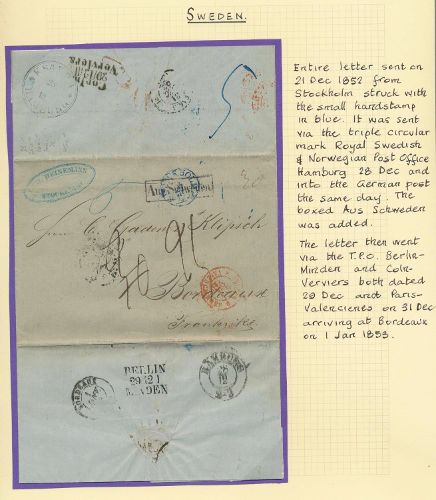 SWEDEN.
Entire letter sent on
21 Dec 1852 from
Stockholm struck with
the small handstamp
in blue. It was sent
via the triple circular
mark Royal Swedish
& Norwegian Post Office
Hamburg 28 Dec and
into the German post
the same day. The
boxed Aus Schweden
was added.
The letter then went
via the T.P.O. Berlin-
Minden and Coln-
Verviers both dated
29 Dec and Paris-
Valenciennes on 31 Dec
arriving at Bordeaux
on 1 Jan 1853.
Verviers
HEINEMANN
STOCKHOLM
Aus Schweden
Bordeaux
BORDEAUX
BERLIN
29 12 I
MINDEN
HAMBURG